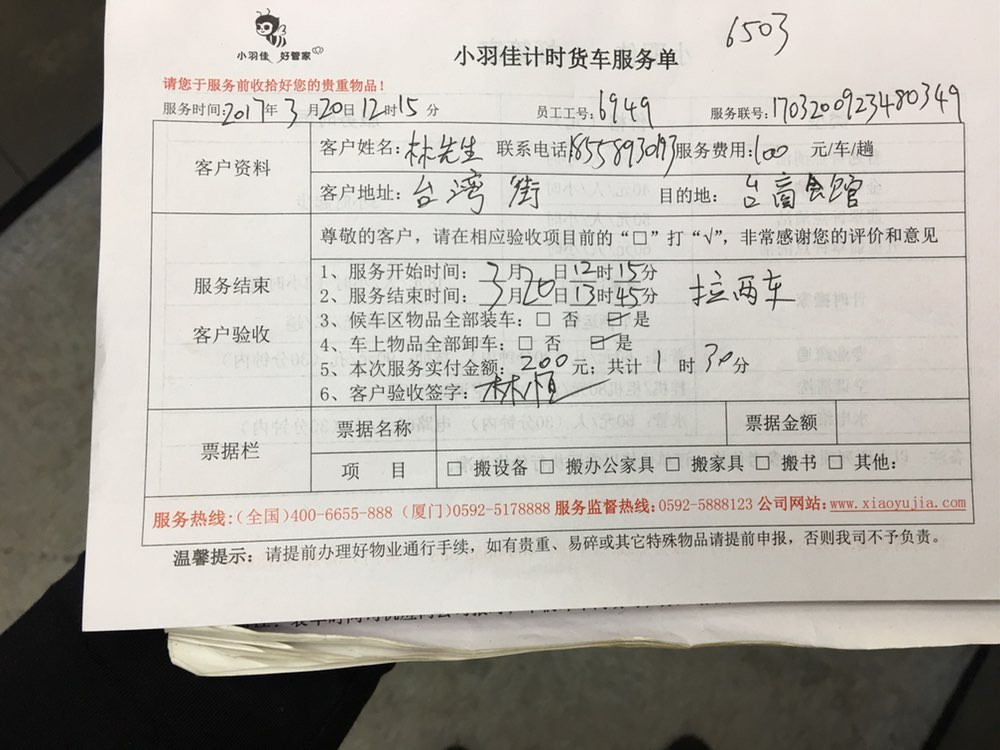 6503
小羽佳 好管家
小羽佳计时货车服务单
请您于服务前收拾好您的贵重物品！
服务时间:2017年 3 月20日12时15 分 员工工号:6949 服务联号:1703200923480349
客户资料
客户姓名: 林先生 联系电话18558930193服务费用:100 元/车/趟
客户地址: 台湾 街 目的地: 台商会馆
服务结束
客户验收
尊敬的客户，请在相应验收项目前的“□”打“√”，非常感谢您的评价和意见
1、服务开始时间: 3月20日12时15分
2、服务结束时间: 3月20日13时45分 拉两车
3、候车区物品全部装车: □ 否 ☑ 是
4、车上物品全部卸车: □ 否 ☑ 是
5、本次服务实付金额: 200 元; 共计 1 时 30分
6、客户验收签字: 林恒
票据栏
票据名称 票据金额
项 目 □ 搬设备 □ 搬办公家具 □ 搬家具 □ 搬书 □ 其他:
服务热线:(全国)400-6655-888 (厦门)0592-5178888 服务监督热线:0592-5888123 公司网站: www.xiaoyujia.com
温馨提示: 请提前办理好物业通行手续，如有贵重、易碎或其它特殊物品请提前申报，否则我司不予负责。